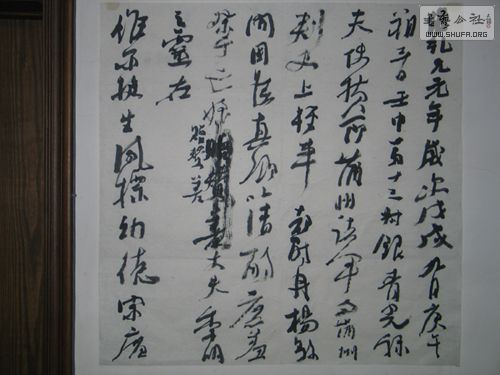 書藝公社
WWW.SHUFA.ORG
乾元元年歲次戊戌九月庚午
朔三日壬申第十三叔銀青光祿
夫使持節蒲州諸軍事蒲州
刺史上輕車都尉丹楊縣
開國侯真卿以清酌庶羞
祭于亡姪贈贊善大夫季明
之靈
惟爾挺生夙標幼德宗廟